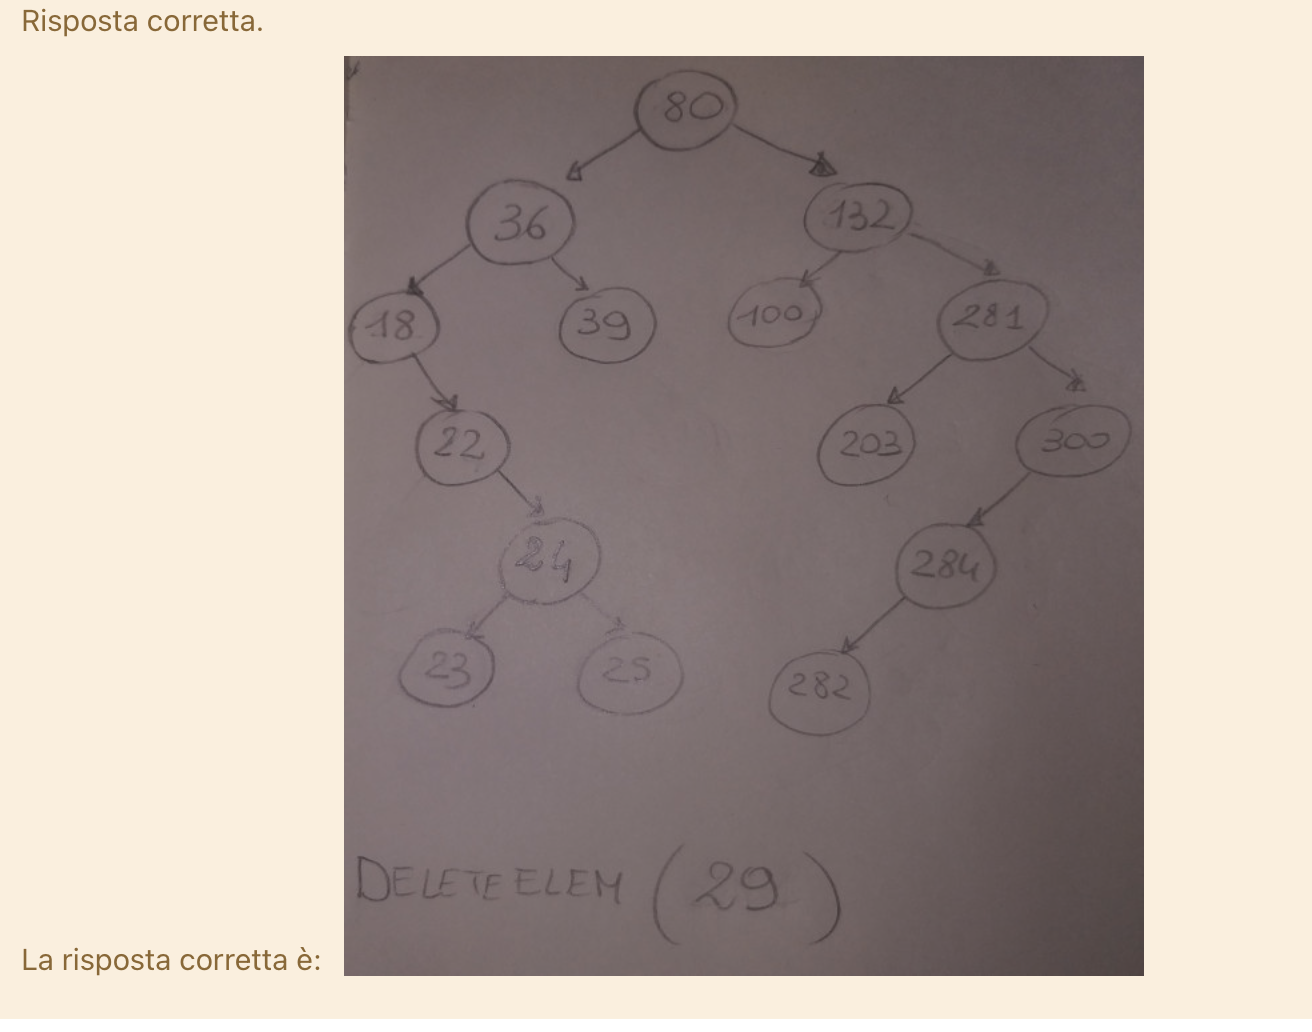 Risposta corretta.
80
36 132
18 39 100 281
22 203 300
24 284
23 25 282
DELETE ELEM (29)
La risposta corretta è: